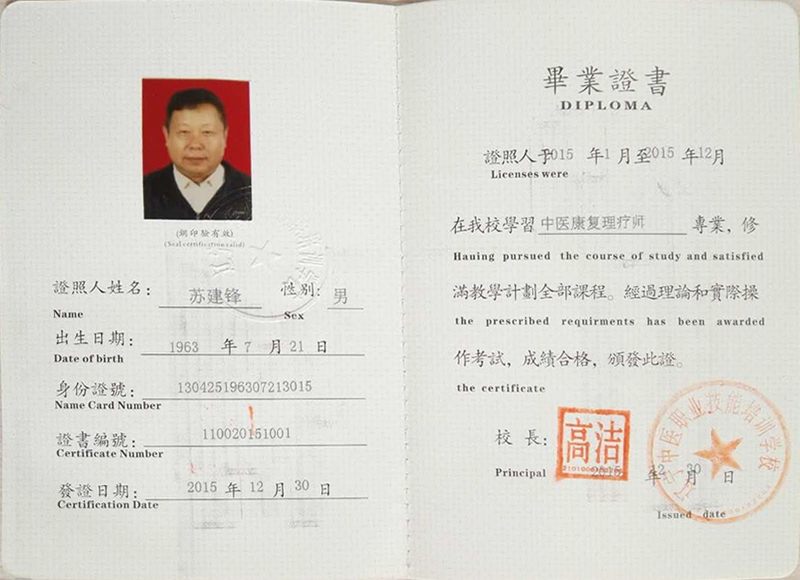 (鋼印驗有效)
(Seal certification valid)
證照人姓名: 苏建锋 性别: 男
Name Sex
出生日期: 1963 年 7 月 21 日
Date of birth
身份證號: 130425196307213015
Name Card Number
證書編號: 110020151001
Certificate Number
發證日期: 2015 年 12 月 30 日
Certification Date
畢業證書
DIPLOMA
證照人于2015 年 1 月至2015 年 12月
Licenses were
在我校學習 中医康复理疗师 專業，修
Hauing pursued the course of study and satisfied
滿教學計劃全部課程。經過理論和實際操
the prescribed requirments has been awarded
作考試，成績合格，頒發此證。
the certificate
校長: 高洁
Principal 2015 12 30
月 日
Issued date
中医职业技能培训学校